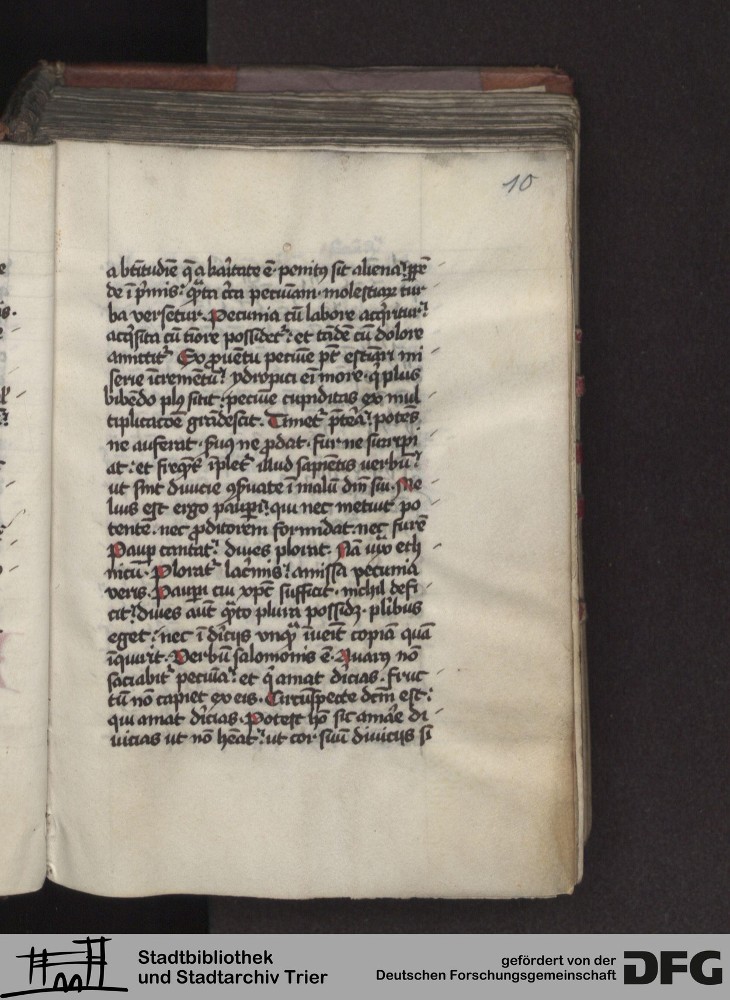 10
a bt̄itudīe q̄ a karitate ē · penit9 sit aliena?
de ī p̄mis: q̄ta c̄ca pecuniam · molestiaꝝ tur
ba versetur. Pecunia cū labore acq̄ritur:
acq̄sita cū tīore possidet᷑: et tādē cū dolore
amittit᷑ Ex ꝓuētu pecunie pt̄ estimari mi
serie īcrementū: ydropici eī more · q̇ plus
bibēdo pl9 sitit: pecunie cupiditas ex mul
tiplicacōe grādescit. Timet᷑ p̄terea: potēs
ne auferat · seruus ne ꝓdat · fur ne surripi
at: et freq̄nt᷑ īplet᷑ illud sapientis verbū:
ut sint diuicie ꝯseruate ī malū dn̄i sui. Me
lius est ergo paupi: qui nec metuit po
tentē. nec ꝓditorem formidat. nec furē
Paup cantat: diues plorat. Nā iuxta eth
nicū. Plorat᷑ lacrimis: amissa pecunia
veris. Paupi cui xp̄c sufficit. nichil defi
cit: diues aūt q̄nto plura possidꝫ · plibus
eget: nec ī diuicijs vnq̄ īueīt copiā quā
īquirit. Verbū salomonis ē. Auarus nō
saciabit᷑ pecunia: et q̇ amat diuicias. fruc
tū nō capiet ex eis. Circūspecte dc̄m est:
qui amat diuicias. Potest h̄o sic amare di
uicias ut nō heat᷑: ut cor suū diuicijs si
Stadtbibliothek
und Stadtarchiv Trier
gefördert von der
Deutschen Forschungsgemeinschaft
DFG